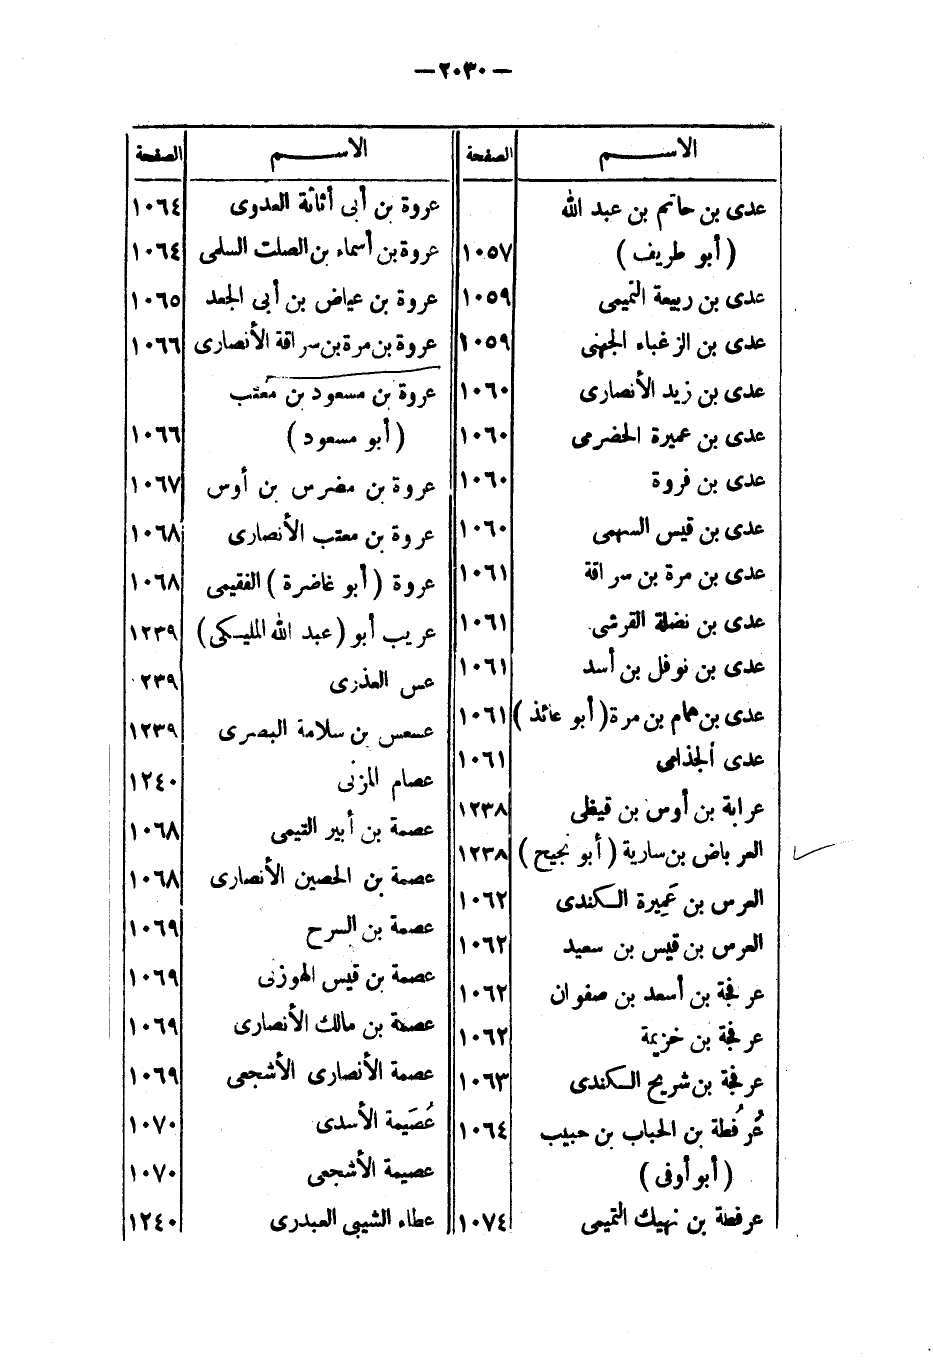 — ٢٠٣٠ —
الاســـم الصفحة
عدى بن حاتم بن عبد الله
( أبو طريف ) ١٠٥٧
عدى بن ربيعة التميمى ١٠٥٩
عدى بن الزغباء الجهنى ١٠٥٩
عدى بن زيد الأنصارى ١٠٦٠
عدى بن عميرة الحضرمى ١٠٦٠
عدى بن فروة ١٠٦٠
عدى بن قيس السهمى ١٠٦٠
عدى بن مرة بن سراقة ١٠٦١
عدى بن نضلة القرشى ١٠٦١
عدى بن نوفل بن أسد ١٠٦١
عدى بن همام بن مرة ( أبو عائذ ) ١٠٦١
عدى الجذامى ١٠٦١
عرابة بن أوس بن قيظى ١٢٣٨
العرباض بن سارية ( أبو نجيح ) ١٢٣٨
العرس بن عَمِيرة الـكندى ١٠٦٢
العرس بن قيس بن سعيد ١٠٦٢
عرفجة بن أسعد بن صفوان ١٠٦٢
عرفجة بن خزيمة ١٠٦٢
عرفجة بن شريح الـكندى ١٠٦٣
عُرفُطة بن الحباب بن حبيب ١٠٦٤
( أبو أوفى )
عرفطة بن نهيك التميمى ١٠٧٤
الاســـم الصفحة
عروة بن أبى أثاثة العدوى ١٠٦٤
عروة بن أسماء بن الصلت السلمى ١٠٦٤
عروة بن عياض بن أبى الجعد ١٠٦٥
عروة بن مرة بن سراقة الأنصارى ١٠٦٦
عروة بن مسعود بن مُعتب
( أبو مسعود ) ١٠٦٦
عروة بن مضرس بن أوس ١٠٦٧
عروة بن معتب الأنصارى ١٠٦٨
عروة ( أبو غاضرة ) الفقيمى ١٠٦٨
عريب أبو ( عبد الله المليـكى ) ١٢٣٩
عس العذرى ٢٣٩
عسعس بن سلامة البصرى ١٢٣٩
عصام المزنى ١٢٤٠
عصمة بن أبير التيمى ١٠٦٨
عصمة بن الحصين الأنصارى ١٠٦٨
عصمة بن السرح ١٠٦٩
عصمة بن قيس الهوزنى ١٠٦٩
عصمة بن مالك الأنصارى ١٠٦٩
عصمة الأنصارى الأشجعى ١٠٦٩
عُصَيمة الأسدى ١٠٧٠
عصيمة الأشجعى ١٠٧٠
عطاء الشيبى العبدرى ١٢٤٠